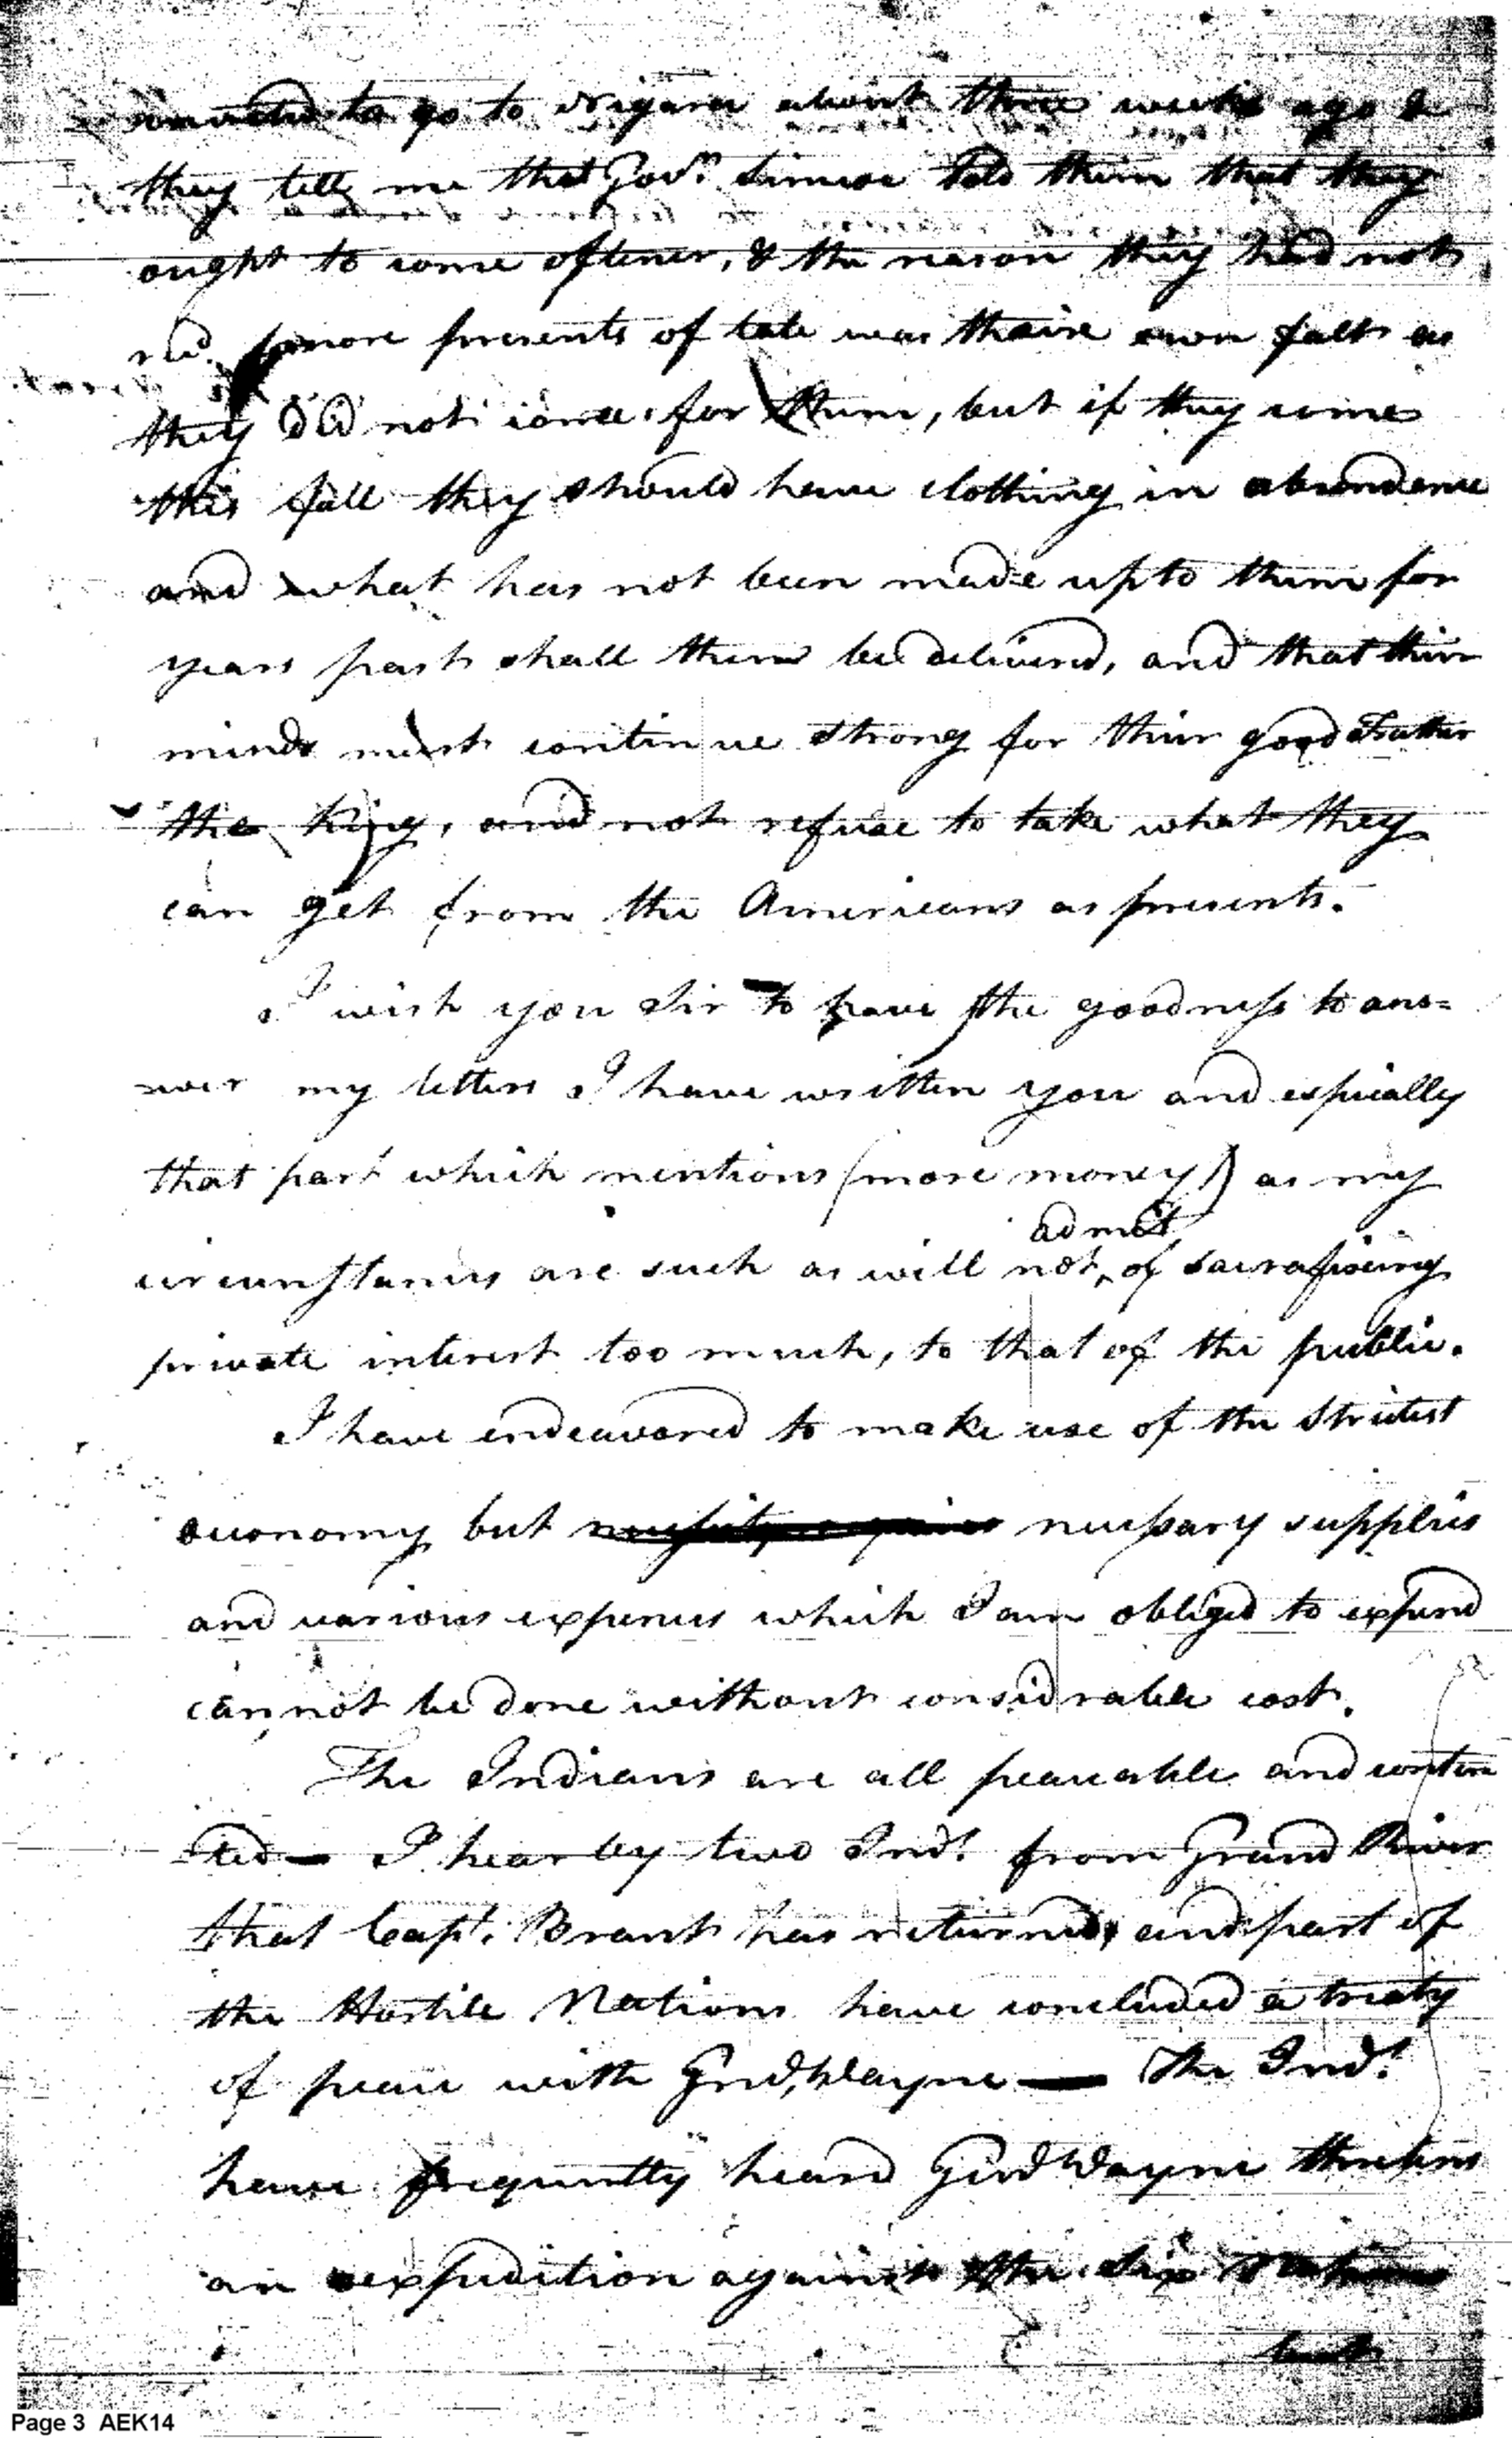 to go to Nigara about three weeks ago &
they tell me that Govr. Simcoe told them that they
ought to come oftener, & the reason they had not
recd. more presents of late was thaire own falt as
they did not come for them, but if they come
this fall they should have clothing in abundance
and what has not been made up to them for
years past shall then be delivered, and that their
minds must continue strong for their good Father
the King, and not refuse to take what they
can get from the Americans as presents.
I wish you Sir to have the goodness to ans=
wer my letters I have written you and espicially
that part which mentions (more money) as my
admit
circumstances are such as will not, of sacrafiseing
private interest too much, to that of the public.
I have endeavored to make use of the strictest
oeconomy but necessity requires necessary supplies
and various expences which I am obliged to expend
cannot be done without considrable cost.
The Indians are all peaceable and conten
ted — I hear by two Inds. from Grand River
that Capt. Brant has returned, and part of
the Hostile Nations have concluded a treaty
of peace with Genl. Wayne — The Inds.
have frequently heard Genl Wayne thretens
an expedition against the Six Nations
but
Page 3 AEK14